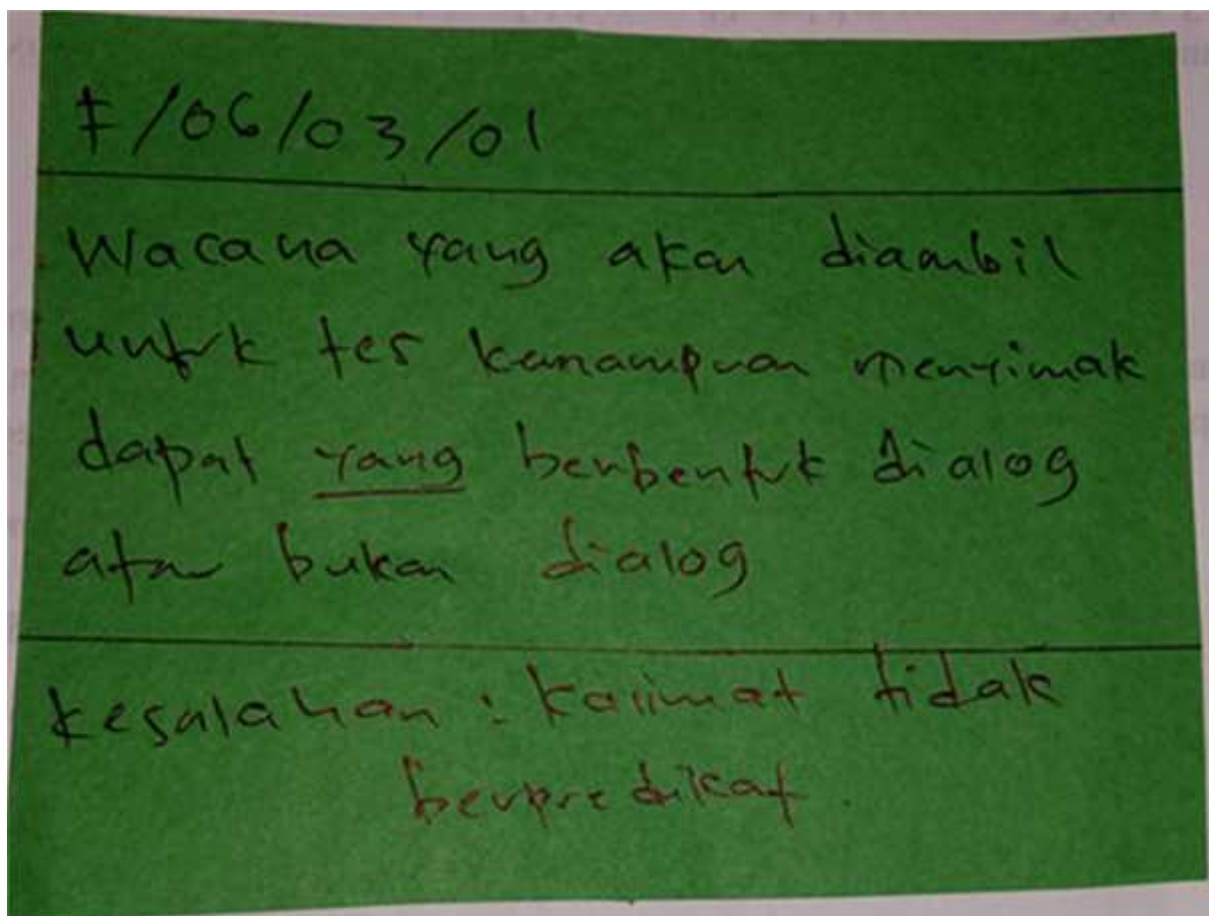 F/06/03/01
Wacana yang akan diambil
untuk tes kemampuan menyimak
dapat yang berbentuk dialog
atau bukan dialog
kesalahan : kalimat tidak
berpredikat.